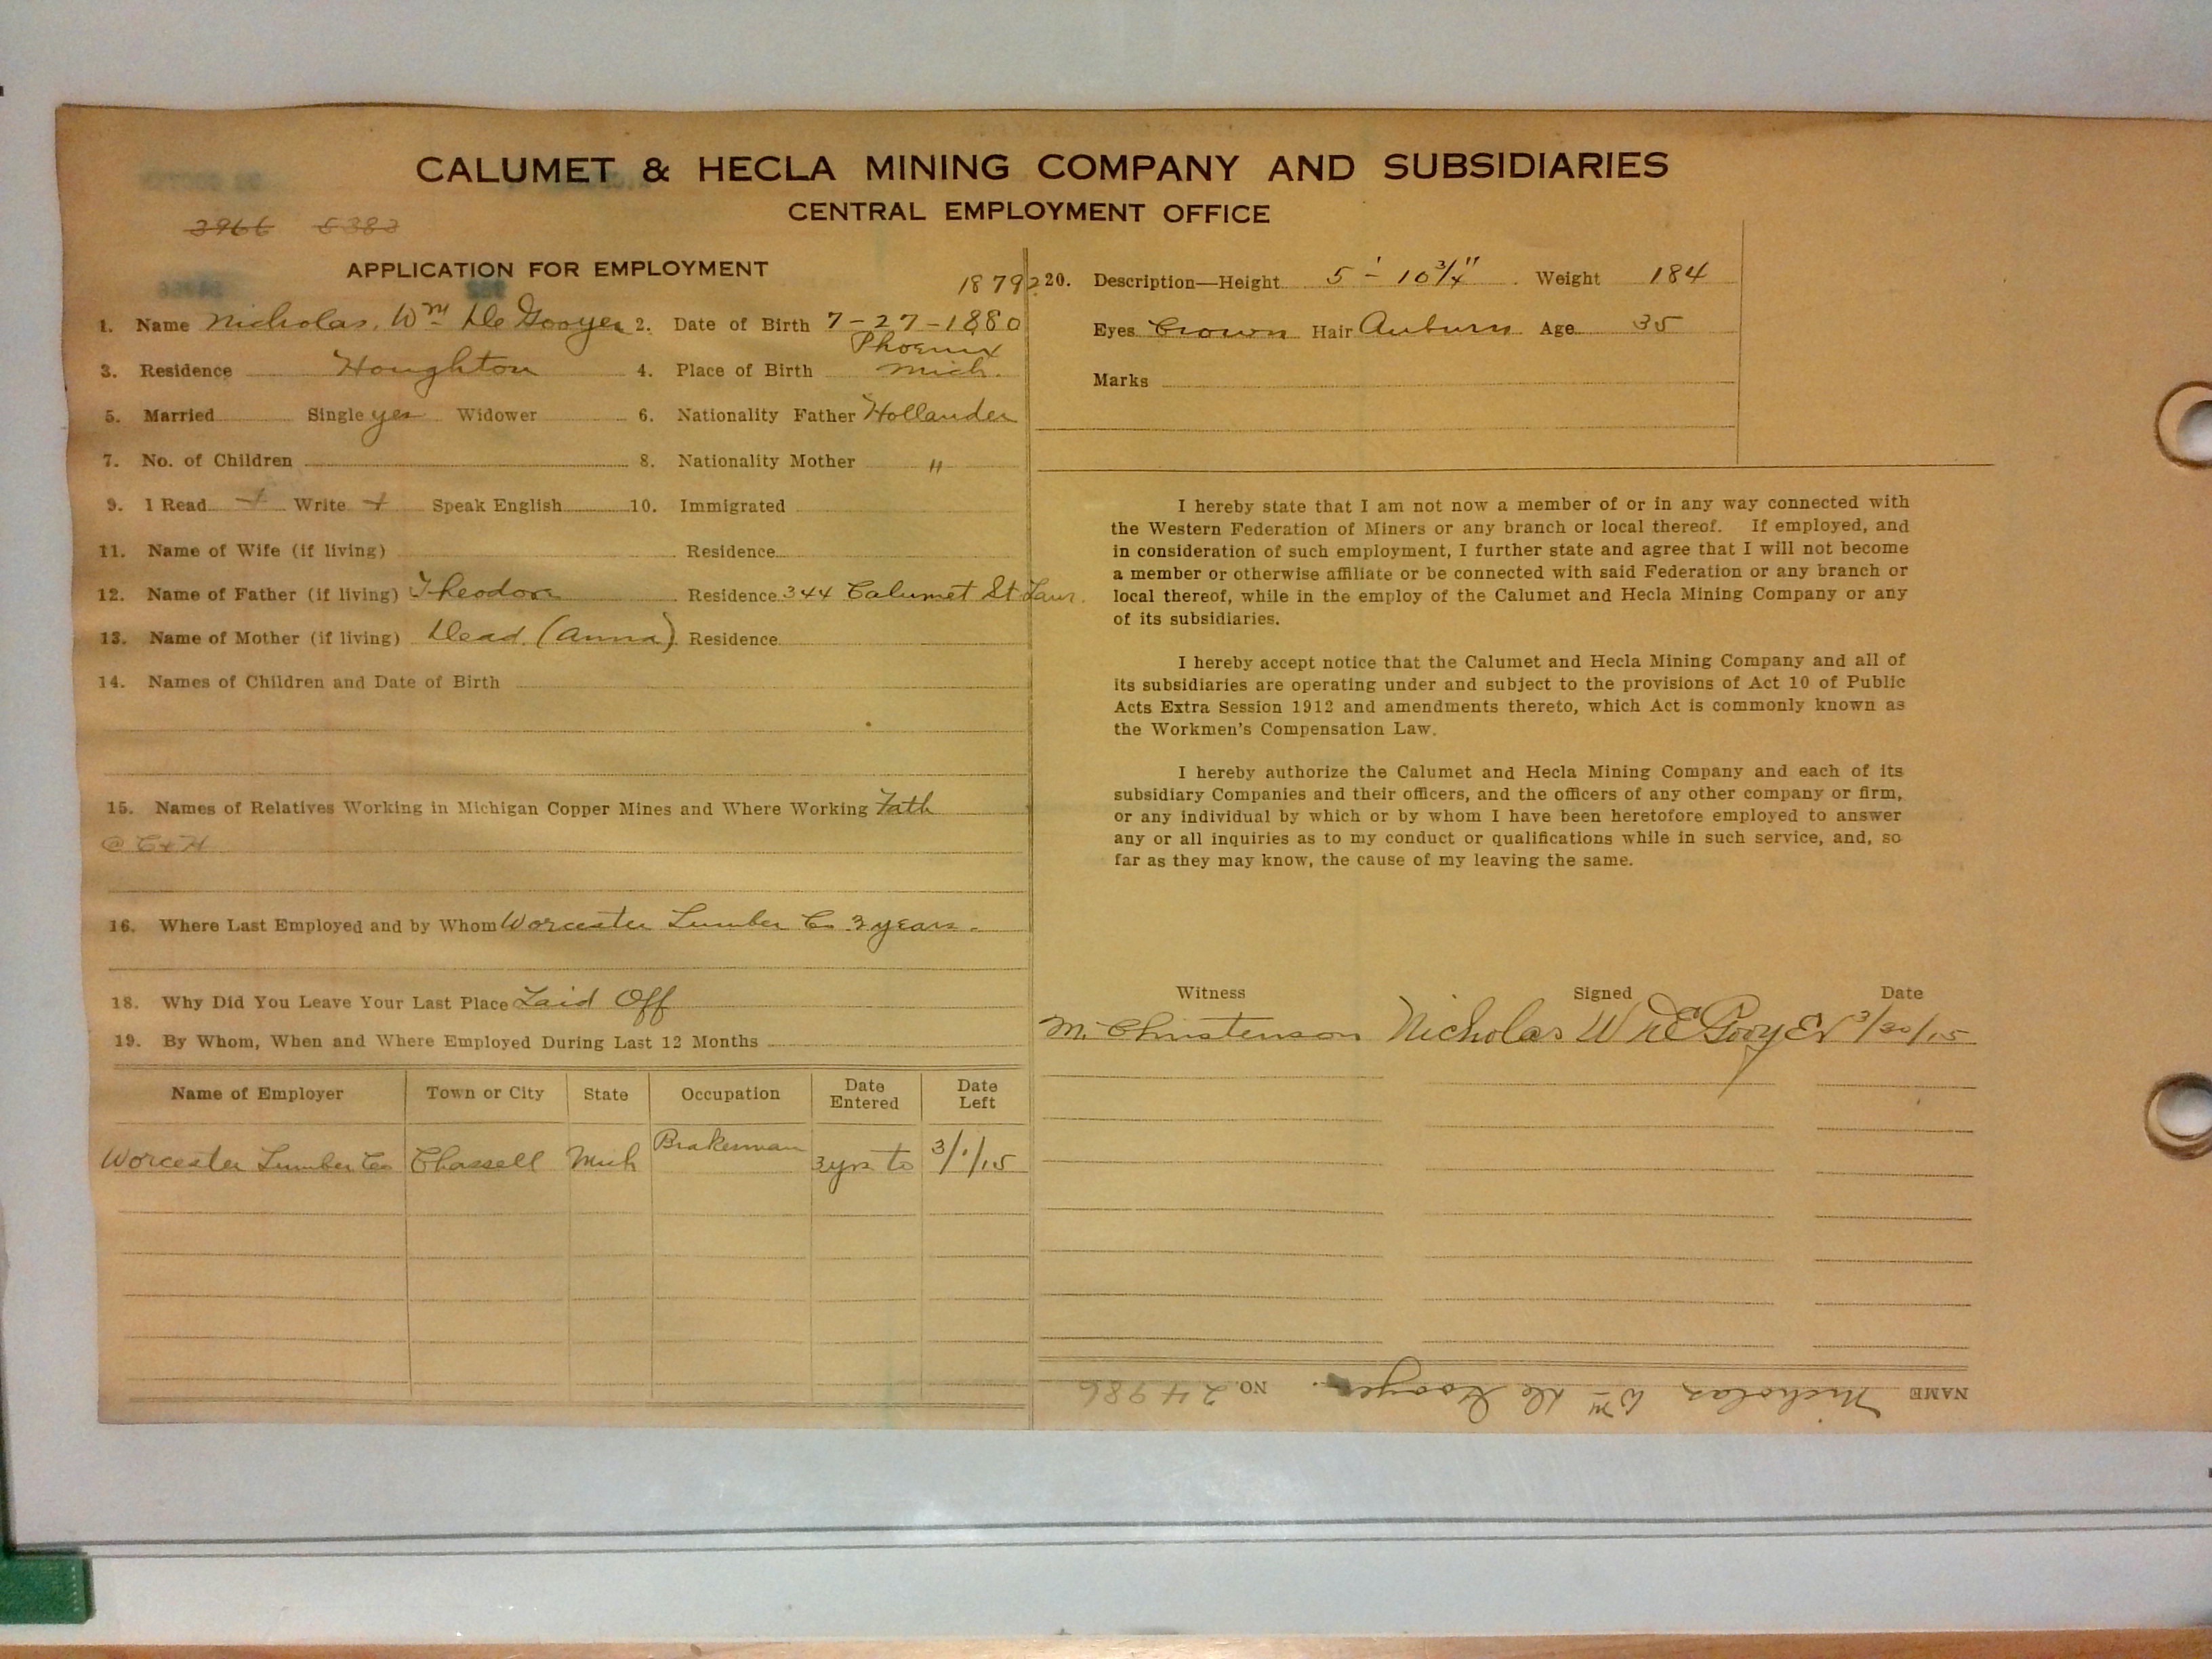 CALUMET & HECLA MINING COMPANY AND SUBSIDIARIES
CENTRAL EMPLOYMENT OFFICE
3966 5383
APPLICATION FOR EMPLOYMENT
1879?
1. Name Nicholas, Wm De Gooyer 2. Date of Birth 7-27-1880
3. Residence Houghton 4. Place of Birth Phoenix Mich.
5. Married Single yes Widower 6. Nationality Father Hollander
7. No. of Children 8. Nationality Mother "
9. I Read + Write + Speak English 10. Immigrated
11. Name of Wife (if living) Residence
12. Name of Father (if living) Theodore Residence 344 Calumet St Laur.
13. Name of Mother (if living) Dead (Anna) Residence
14. Names of Children and Date of Birth
15. Names of Relatives Working in Michigan Copper Mines and Where Working Fath
@ C&H
16. Where Last Employed and by Whom Worcester Lumber Co 3 years.
18. Why Did You Leave Your Last Place Laid Off
19. By Whom, When and Where Employed During Last 12 Months
Name of Employer Town or City State Occupation Date Entered Date Left
Worcester Lumber Co Chassell Mich Brakeman 3 yrs to 3/1/15
20. Description—Height 5'-10 3/4" Weight 184
Eyes Brown Hair Auburn Age 35
Marks
I hereby state that I am not now a member of or in any way connected with
the Western Federation of Miners or any branch or local thereof. If employed, and
in consideration of such employment, I further state and agree that I will not become
a member or otherwise affiliate or be connected with said Federation or any branch or
local thereof, while in the employ of the Calumet and Hecla Mining Company or any
of its subsidiaries.
I hereby accept notice that the Calumet and Hecla Mining Company and all of
its subsidiaries are operating under and subject to the provisions of Act 10 of Public
Acts Extra Session 1912 and amendments thereto, which Act is commonly known as
the Workmen's Compensation Law.
I hereby authorize the Calumet and Hecla Mining Company and each of its
subsidiary Companies and their officers, and the officers of any other company or firm,
or any individual by which or by whom I have been heretofore employed to answer
any or all inquiries as to my conduct or qualifications while in such service, and, so
far as they may know, the cause of my leaving the same.
Witness Signed Date
M. Christenson Nicholas W DE GooyEr 3/30/15
NAME Nicholas, Wm De Gooyer. NO. 24986